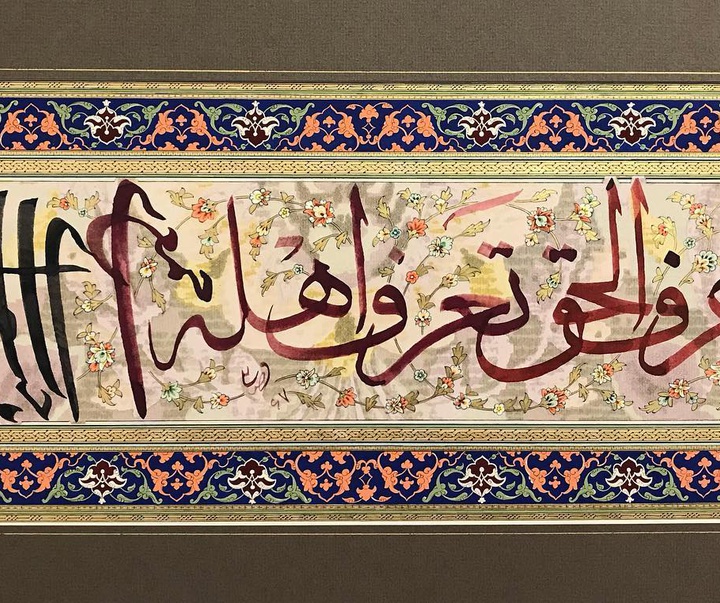 عرف الحق تعرف اهله